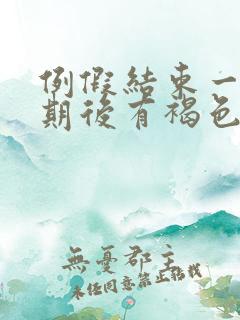 例假結束一
期後有褐色
無憂郡主
未经同意禁止转载